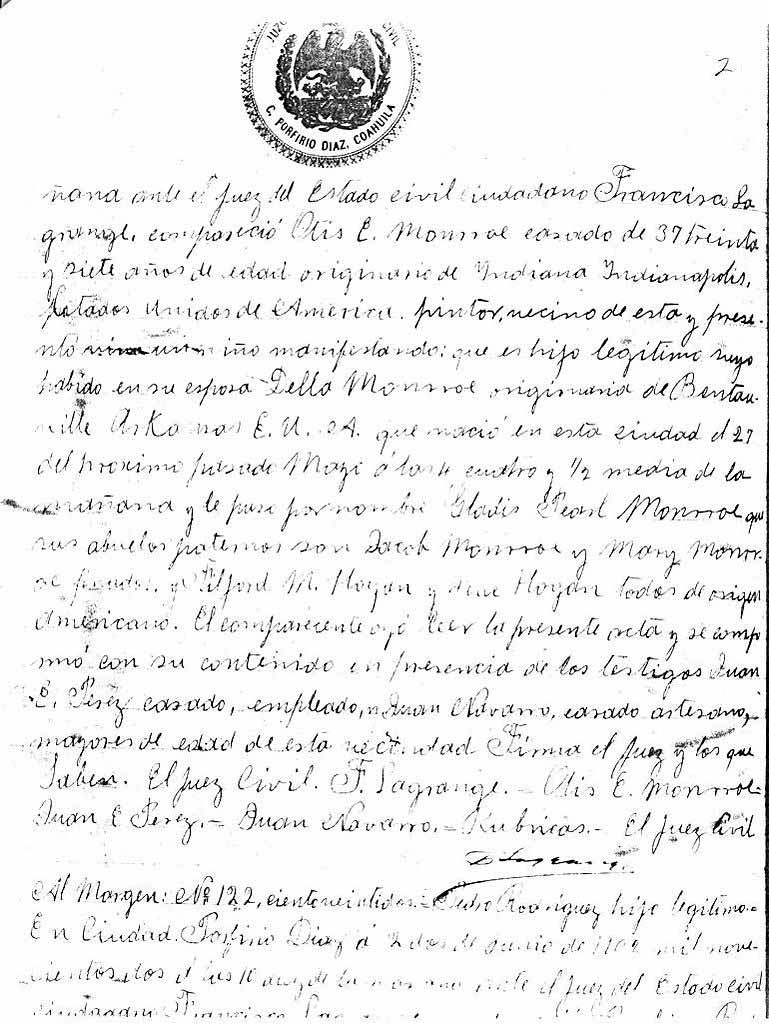 JUZG CIVIL
C. PORFIRIO DIAZ, COAHUILA
2
ñana ante el Juez del Estado civil ciudadano Francisco La
grange, compareció Otis E. Monrroe casado de 37 treinta
y siete años de edad originario de Indiana Indianapolis,
Estados Unidos de America. pintor, vecino de esta y prese
ntó un niño manifestando: que es hijo legitimo suyo
habido en su esposa Della Monrroe originaria de Bentan
ville Arkanas E. U. A. que nació en esta ciudad el 27
del proximo pasado Mayo á las 4 cuatro y 1/2 media de la
mañana y le puso por nombre Gladis Pearl Monrroe que
sus abuelos paternos son Jacob Monrroe y Mary Monrr
oe y M. Hogan y Hogan todos de origen
Americano. El compareciente oyó leer la presente acta y se comp
rmó con su contenido en presencia de los testigos Juan
E. Perez casado, empleado, y Juan Navarro, casado artesano,
mayores de edad de esta vecindad Firma el Juez y los que
Saben. El Juez Civil. F. Lagrange. - Otis E. Monrroe
Juan E Perez. - Juan Navarro. - Rubricas. - El Juez Civil
Al Margen: Nº 122, cientoveintidos. - Pedro Rodriguez hijo legitimo. -
En Ciudad Porfirio Diaz á 2 dos de Junio de 1902 mil nove-
cientos dos á las 10 diez de la mañana ante el Juez del Estado civil
ciudadano Francisco Lagrange